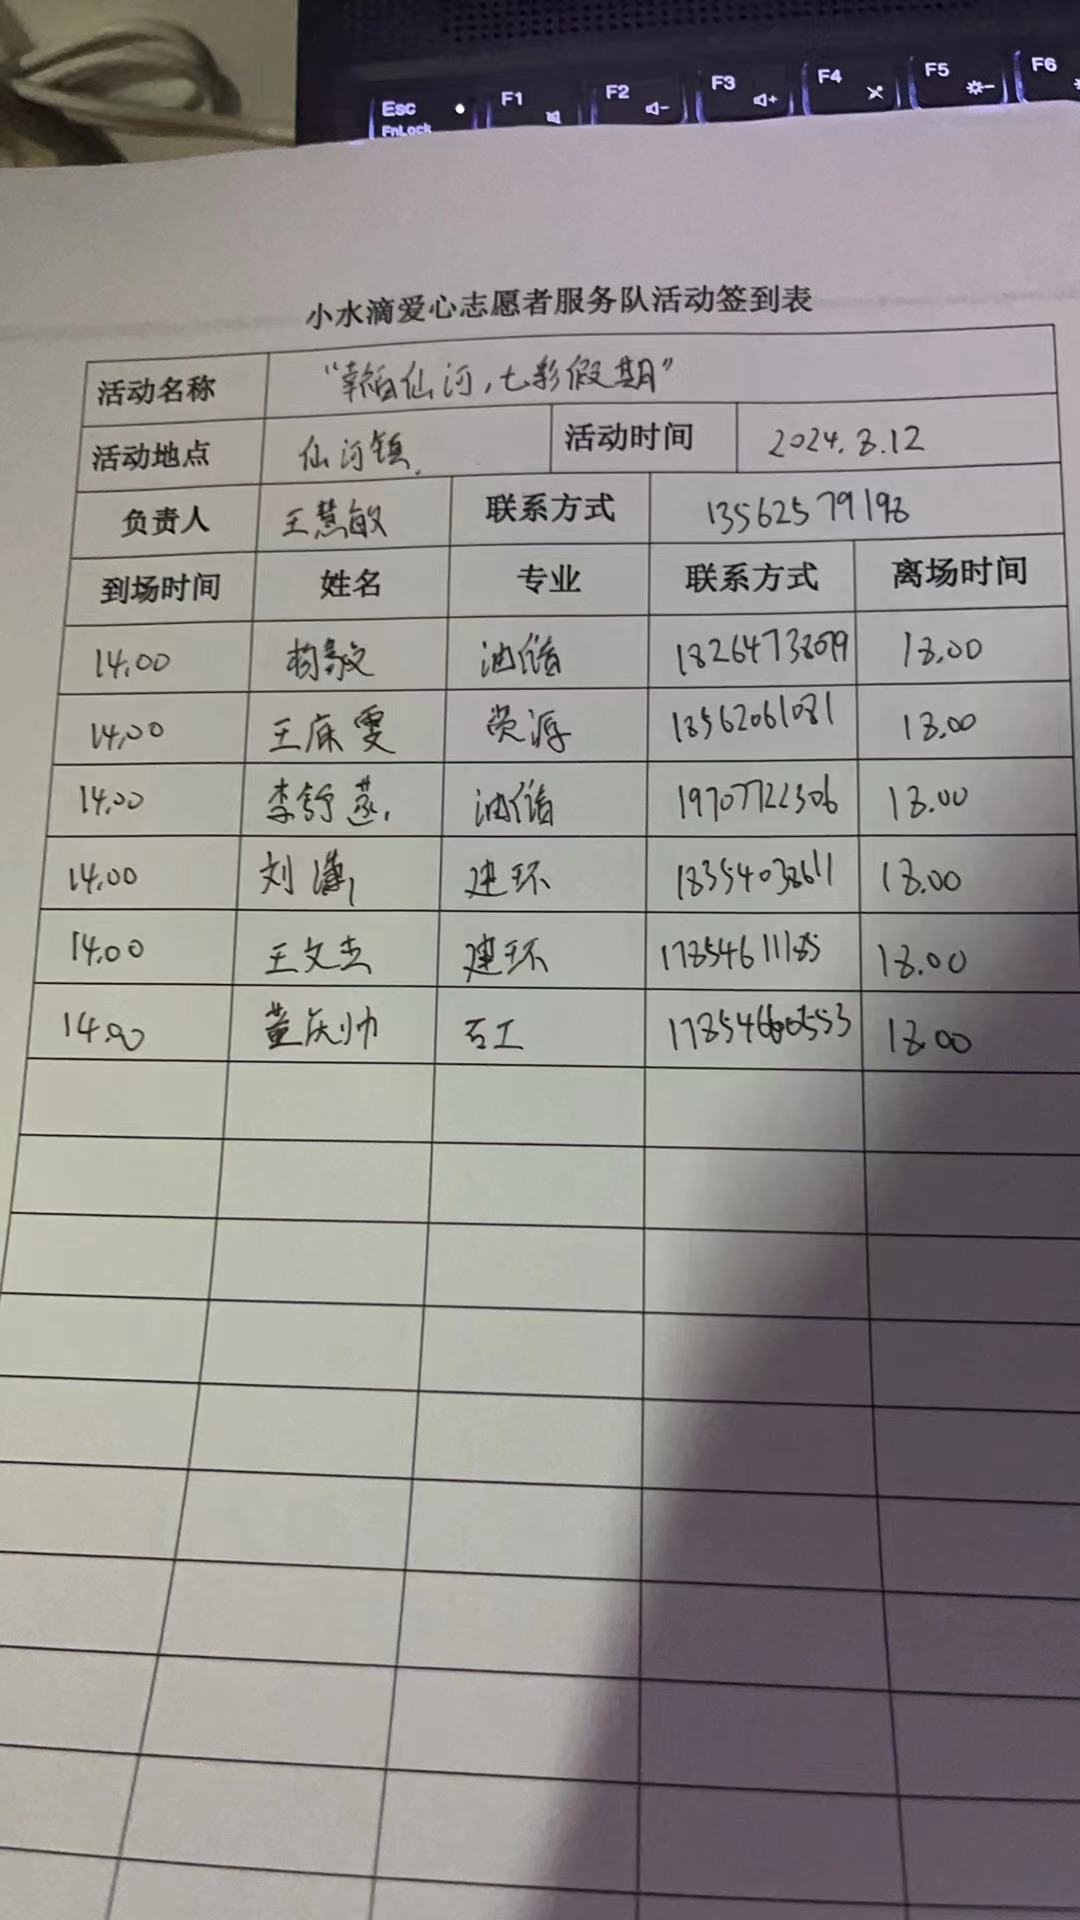 Esc F1 F2 F3 F4 F5 F6
FnLock
小水滴爱心志愿者服务队活动签到表
活动名称 仙河,七彩假期”
活动地点 仙河镇 活动时间 2024.8.12
负责人 王慧敏 联系方式 13562579198
到场时间 姓名 专业 联系方式 离场时间
14.00 油储 18264738079 18.00
14.00 王 雯 18562061081 18.00
14.00 李舒 油储 19707722306 18.00
14.00 刘潇 建环 18354038611 18.00
14.00 王文杰 建环 17854611185 18.00
14.00 董庆帅 石工 18.00